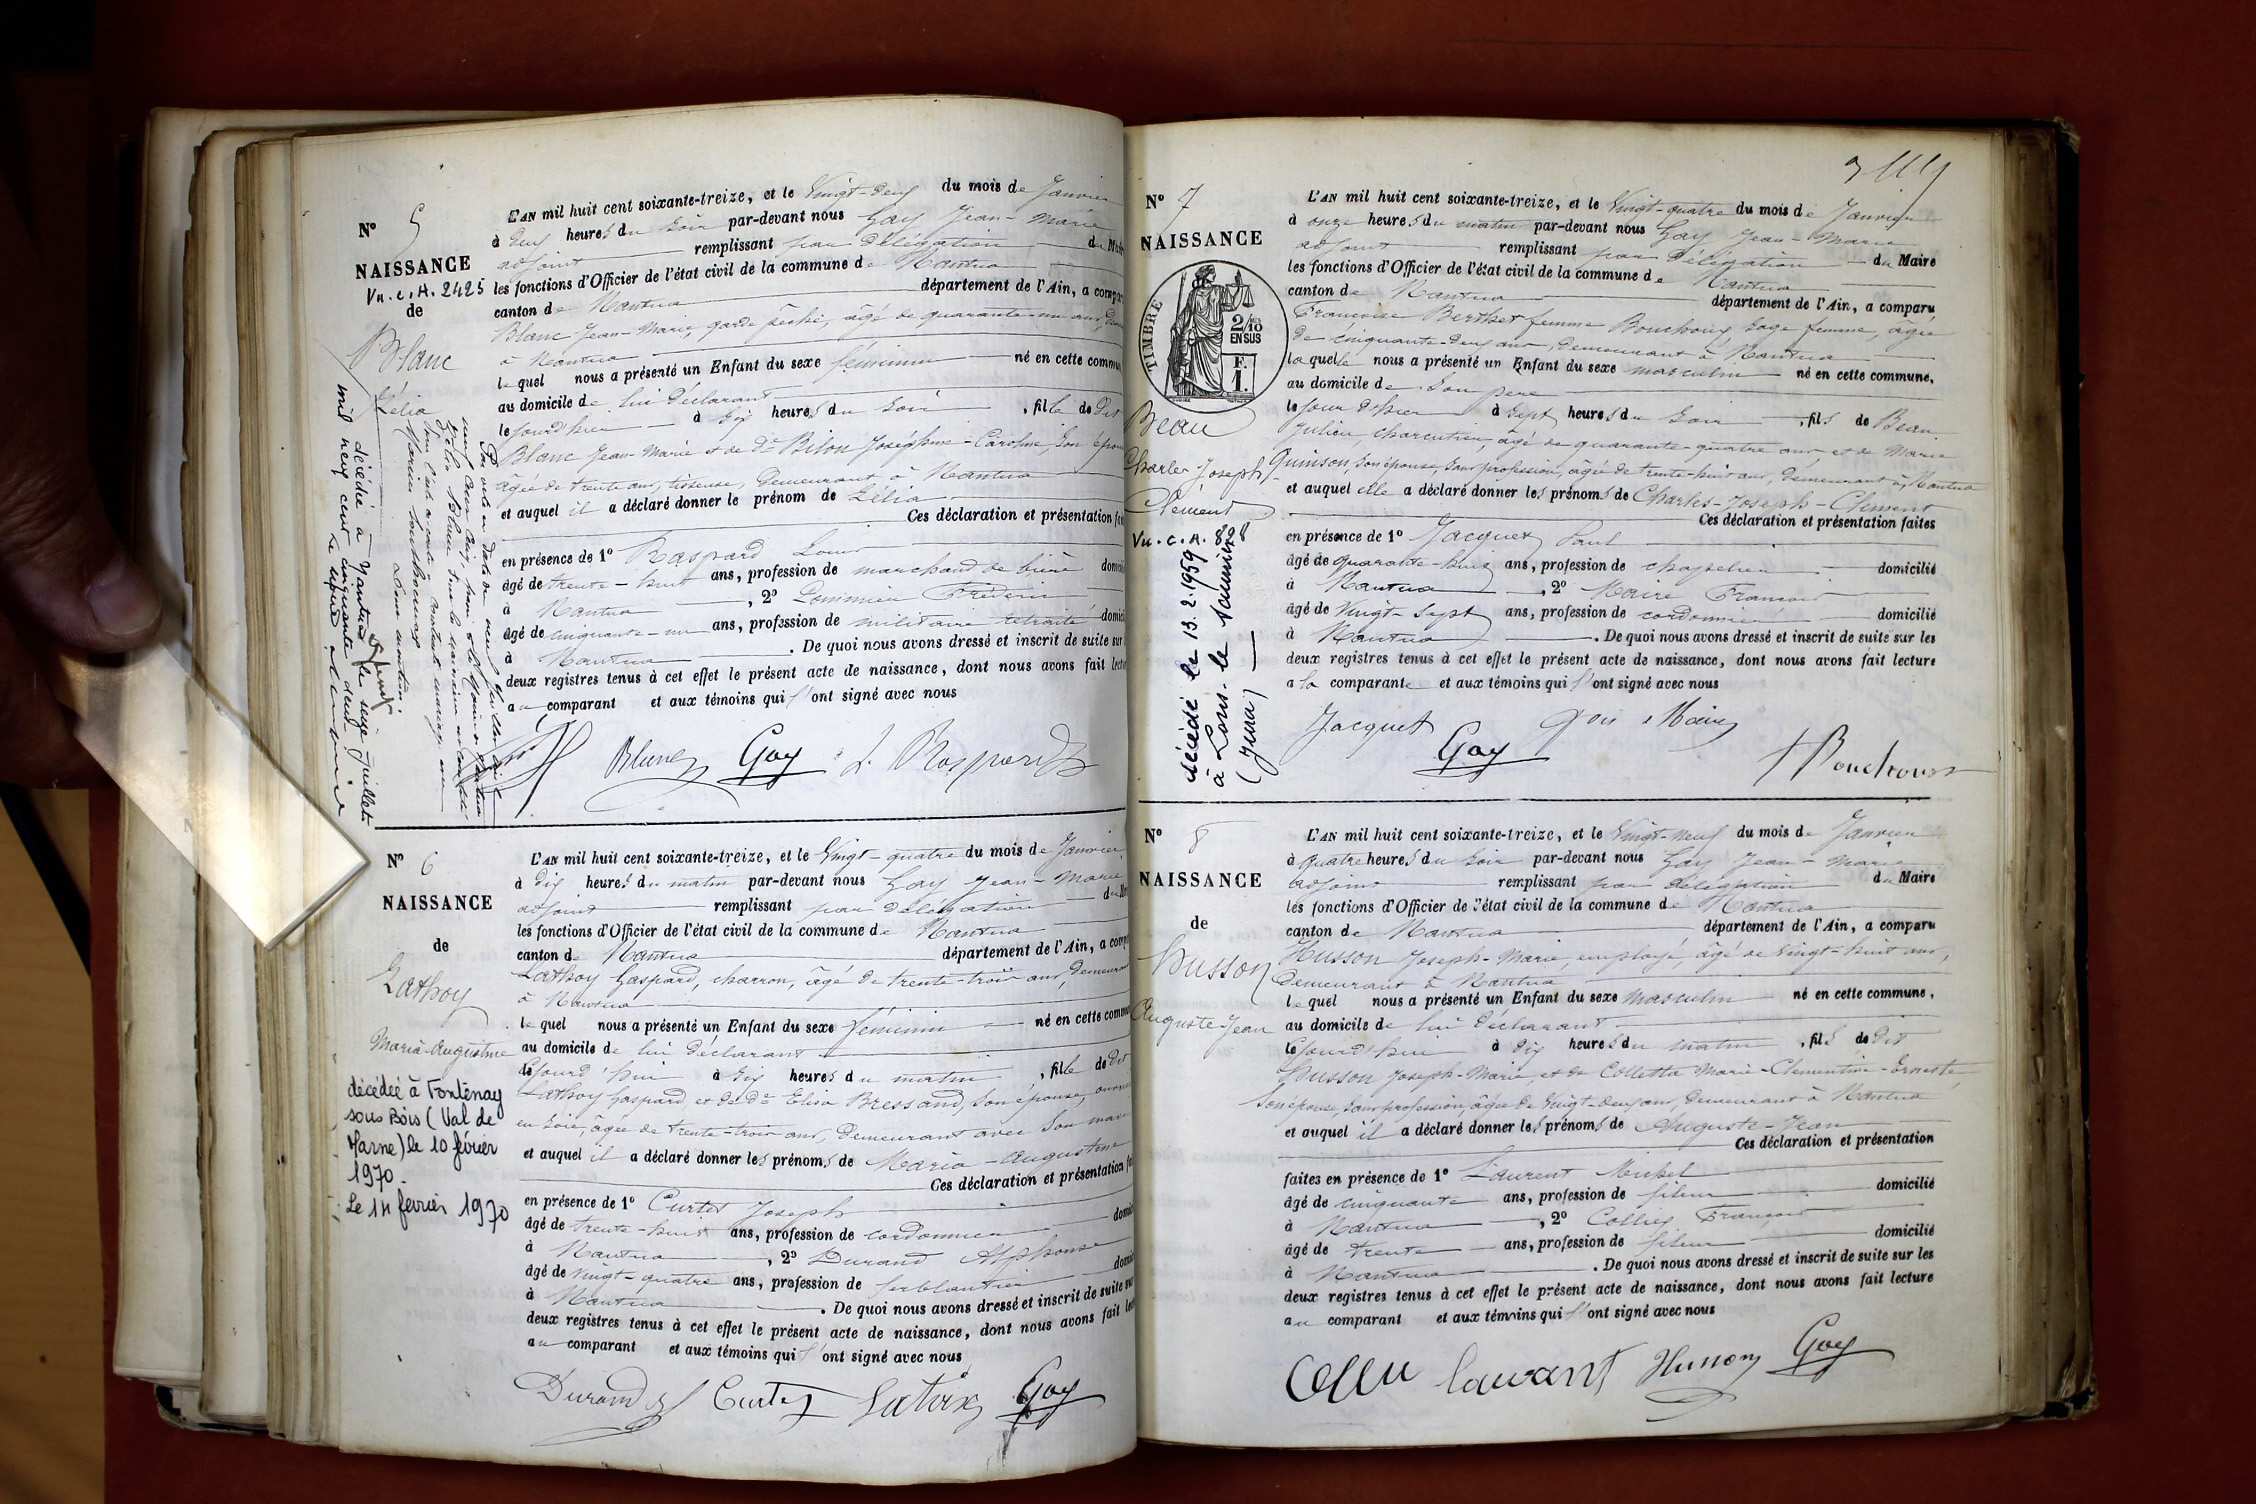 N° 5
NAISSANCE
Vu. c. A. 2425
de
Blanc
Lélia
décédée à Nantua le seize juillet
mil neuf cent cinquante deux
L'AN mil huit cent soixante-treize, et le Vingt-deux du mois de Janvier
à deux heures du soir par-devant nous Gay Jean-Marie
adjoint remplissant par délégation du Maire
les fonctions d'Officier de l'état civil de la commune de Nantua
canton de Nantua département de l'Ain, a comparu
Blanc Jean-Marie, garde pêche, âgé de quarante-un ans,
à Nantua
lequel nous a présenté un Enfant du sexe féminin né en cette commune
au domicile de lui déclarant
lejourd'hier à dix heures du soir, fille de dit
Blanc Jean-Marie et de De Bilon Joséphine-Caroline, son épouse
âgée de trente ans, tisseuse, demeurant à Nantua
et auquel il a déclaré donner le prénom de Lélia
Ces déclaration et présentation
en présence de 1° Raspard Louis
âgé de trente-huit ans, profession de marchand de bière
à Nantua, 2° Frédéric
âgé de cinquante-un ans, profession de militaire retraité
à Nantua. De quoi nous avons dressé et inscrit de suite sur
deux registres tenus à cet effet le présent acte de naissance, dont nous avons fait lecture
au comparant et aux témoins qui l'ont signé avec nous
Blanc Gay L. Raspard
N° 6
NAISSANCE
de
Lathoy
Maria-Augustine
décédée à Fontenay
sous Bois (Val de
Marne) le 10 février
1970.
Le 14 février 1970
L'AN mil huit cent soixante-treize, et le Vingt-quatre du mois de Janvier
à dix heures du matin par-devant nous Gay Jean-Marie
adjoint remplissant par délégation du
les fonctions d'Officier de l'état civil de la commune de Nantua
canton de Nantua département de l'Ain, a
Lathoy Gaspard, charron, âgé de trente-trois ans, demeurant
à Nantua
lequel nous a présenté un Enfant du sexe féminin né en cette
au domicile de lui déclarant
lejourd'hui à dix heures du matin, fille de dit
Lathoy Gaspard et de De Elisa Bressand, son épouse,
en soie, âgée de trente-trois ans, demeurant avec son mari
et auquel il a déclaré donner les prénoms de Maria-Augustine
Ces déclaration et présentation
en présence de 1° Curtet Joseph
âgé de trente-huit ans, profession de cordonnier
à Nantua, 2° Durand Alphonse
âgé de vingt-quatre ans, profession de ferblantier
à Nantua. De quoi nous avons dressé et inscrit de suite sur
deux registres tenus à cet effet le présent acte de naissance, dont nous avons fait
au comparant et aux témoins qui l'ont signé avec nous
Durand Curtet Gay
N° 7
NAISSANCE
TIMBRE
2/10
EN SUS
F.
1.
Beau
Charles Joseph
Clément
Vu. c. A. 8898
décédé le 13.2.1959
à Lons-le Saunier
(Jura)
L'AN mil huit cent soixante-treize, et le Vingt-quatre du mois de Janvier
à onze heures du matin par-devant nous Gay Jean-Marie
adjoint remplissant par délégation du Maire
les fonctions d'Officier de l'état civil de la commune de Nantua
canton de Nantua département de l'Ain, a comparu
Françoise Berthet femme Bouchoux sage femme, âgée
de cinquante-deux ans, demeurant à Nantua
laquelle nous a présenté un Enfant du sexe masculin né en cette commune,
au domicile de son père
lejour d'hier à sept heures du soir, fils de Beau
Julien, charcutier, âgé de quarante-quatre ans et de Marie
Quinson, son épouse, sans profession, âgée de trente-huit ans, demeurant à Nantua
et auquel elle a déclaré donner les prénoms de Charles-Joseph-Clément
Ces déclaration et présentation faites
en présence de 1° Jacquet Paul
âgé de quarante-huit ans, profession de chapelier domicilié
à Nantua, 2° Maire François
âgé de Vingt-sept ans, profession de cordonnier domicilié
à Nantua. De quoi nous avons dressé et inscrit de suite sur les
deux registres tenus à cet effet le présent acte de naissance, dont nous avons fait lecture
a la comparante et aux témoins qui l'ont signé avec nous
Jacquet Gay Maire
Bouchoux
N° 8
NAISSANCE
de
Husson
Auguste-Jean
L'AN mil huit cent soixante-treize, et le Vingt-neuf du mois de Janvier
à quatre heures du soir par-devant nous Gay Jean-Marie
adjoint remplissant par délégation du Maire
les fonctions d'Officier de l'état civil de la commune de Nantua
canton de Nantua département de l'Ain, a comparu
Husson Joseph-Marie, employé, âgé de vingt-huit ans,
demeurant à Nantua
lequel nous a présenté un Enfant du sexe masculin né en cette commune,
au domicile de lui déclarant
lejourd'hui à dix heures du matin, fils de dit
Husson Joseph-Marie, et de Colletta Marie-Clémentine-Erneste,
son épouse, sans profession, âgée de vingt-deux ans, demeurant à Nantua
et auquel il a déclaré donner les prénoms de Auguste-Jean
Ces déclaration et présentation
faites en présence de 1° Laurent Michel
âgé de cinquante ans, profession de fileur domicilié
à Nantua, 2° Collix François
âgé de trente ans, profession de fileur domicilié
à Nantua. De quoi nous avons dressé et inscrit de suite sur les
deux registres tenus à cet effet le présent acte de naissance, dont nous avons fait lecture
au comparant et aux témoins qui l'ont signé avec nous
Laurant Husson Gay